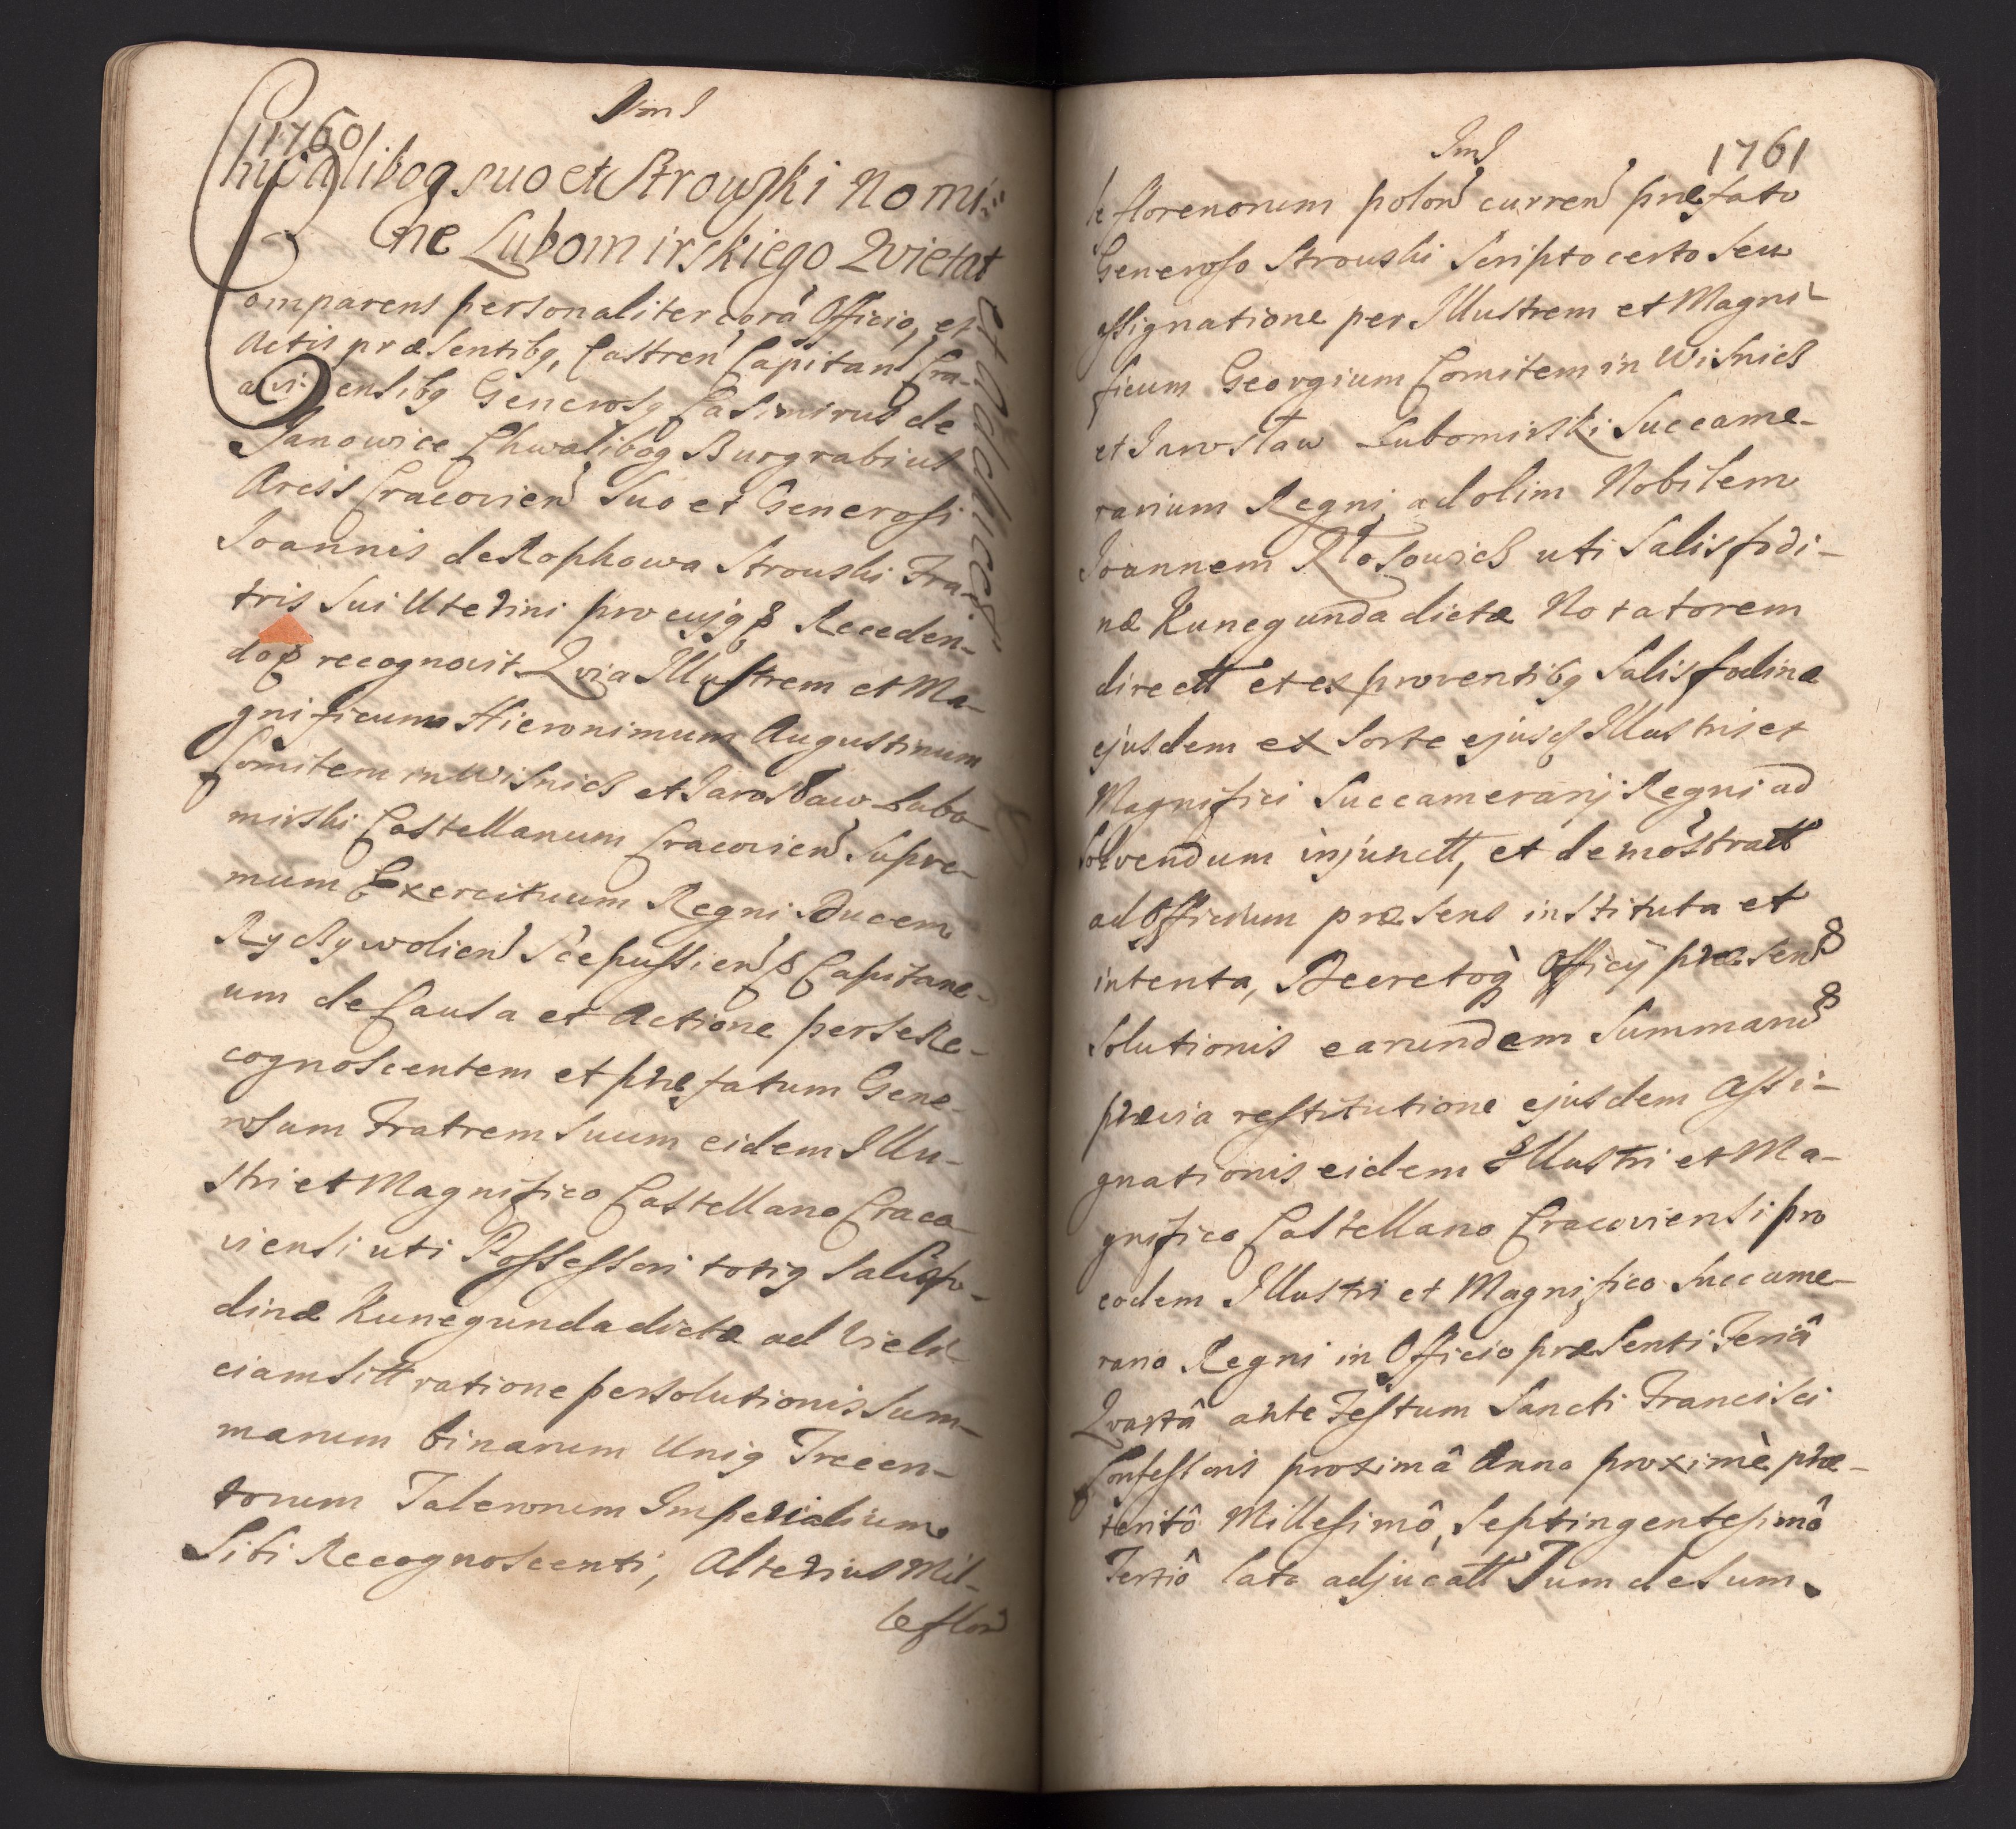 1760
Chwalibog suo et Strouski Nomi:
ne Lubomirskiego Quietat
et Adducens
Comparens personaliter corā Officio, et
Actis præsentibq, Castren Capitan Cra-
coviensibq Generosq Casimirus de
Janowice Chwalibog Burgrabius
Arcis Cracovien suo et Generosi
Joannis de Kopkowa Strouski Fra-
tris sui Uterini pro cujq Receden-
do recognovit. Quia Illustrem et Ma-
gnificum Hieronimum Augustinum
Comitem in Wisnicz et Jarosław Lubo-
mirski Castellanum Cracovien Supre-
mum Exercituum Regni Ducem
Ryczywolien Scepussien Capitane-
um de Causa et Actione per se Re-
cognoscentem et præfatum Gene-
rosum Fratrem Suum eidem Illu-
stri et Magnifico Castellano Craco-
viensi uti Possessori totiq Salisfo-
dinæ Kunegunda dictæ ad Vieli-
ciam sitt ratione persolutionis Sum-
marum binarum Uniq Trecen-
torum Talerorum Imperialium
Sibi Recognoscenti, Alterius Mil-
le flor
1761
le florenorum polon curren præfato
Generoso Strouski Scripto certo seu
assignatione per Illustrem et Magni-
ficum Georgium Comitem in Wisnicz
et Jarosław Lubomirski Succame-
rarium Regni, ad olim Nobilem
Joannem Kłosowicz uti Salisfodi-
næ Kunegunda dictæ Notatorem
directt et ex proventibq Salisfodinæ
ejusdem ex Sorte ejusd Illustris et
Magnifici Succamerarij Regni ad
Solvendum injunctt, et demōstratt
ad Officium præsens instituta et
intenta, Decretoq Officij præsen
Solutionis earundem Summaru
prævia restitutione ejusdem Assi-
gnationis eidem Illustri et Ma-
gnifico Castellano Cracoviensi pro
eodem Illustri et Magnifico Succame-
rario Regni in Officio præsenti Feriâ
Quartâ ante Festum Sancti Francisci
Confessoris proximâ Anno proximè præ-
teritô Millesimô, Septingentesimô
Tertiô lato adjucatt Tum de Sum